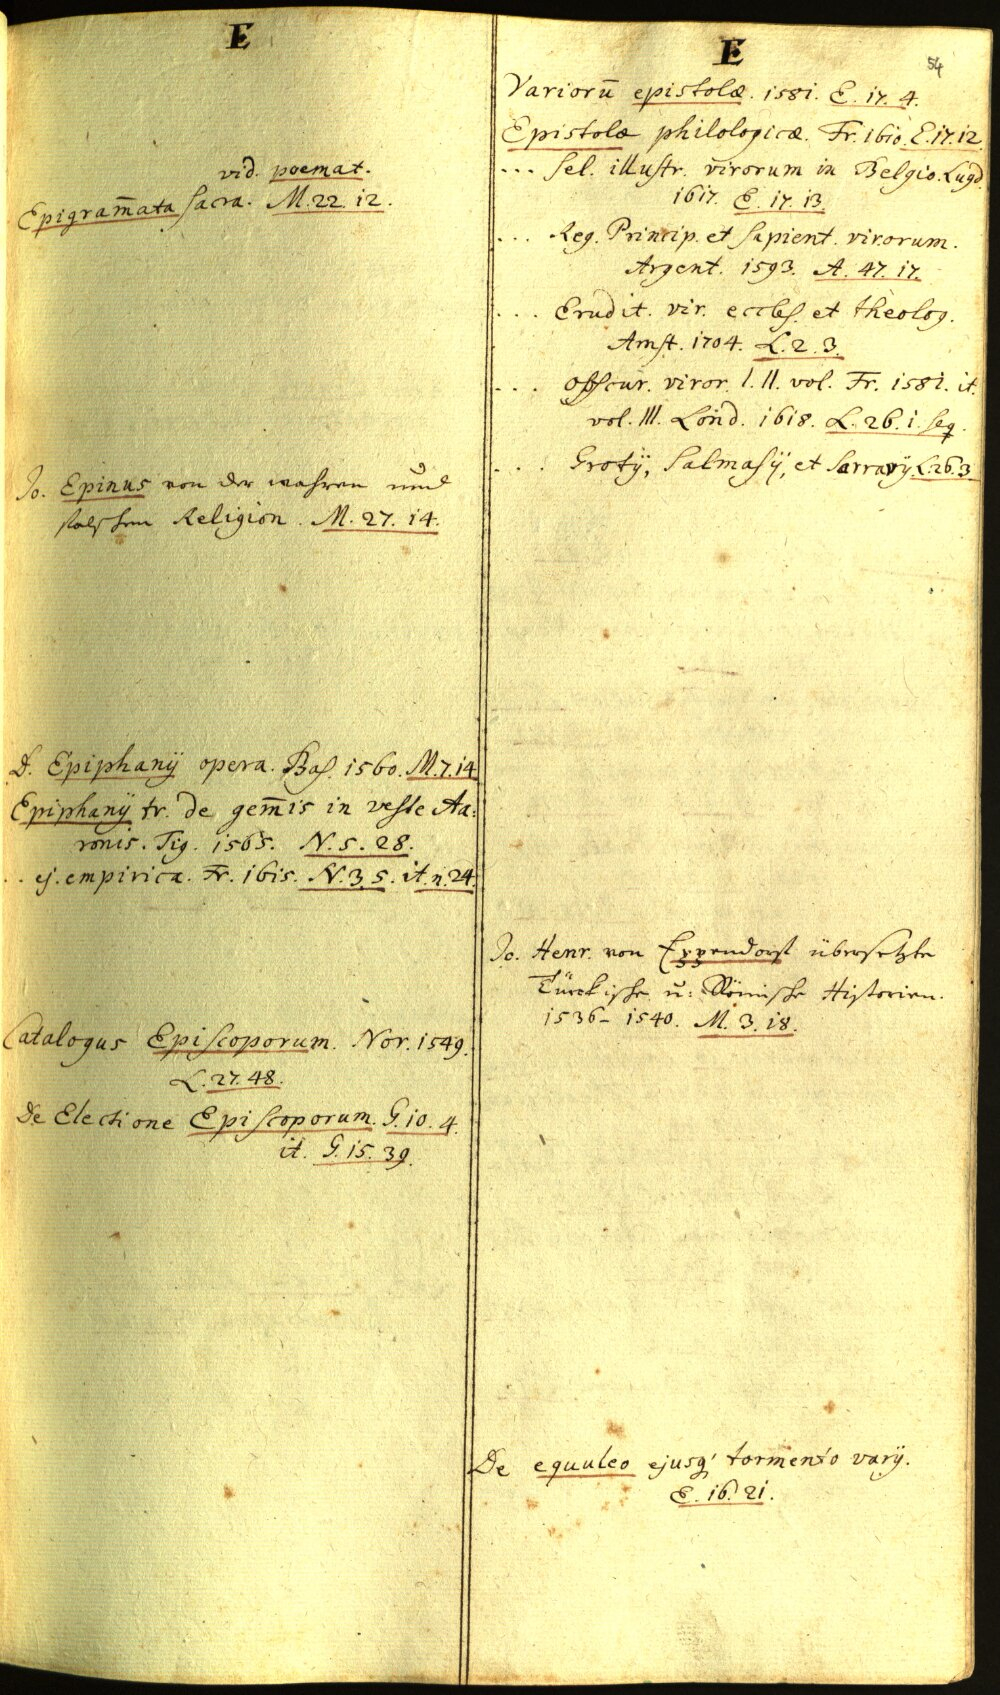 E
vid. poemat.
Epigram̄ata sacra. M. 22. 12.
Jo. Epinus von der wahren und
falschen Religion. M. 27. 14.
D. Epiphanÿ opera. Bas. 1560. M. 7. 14
Epiphanÿ tr. de gem̄is in veste Aa:
ronis. Tig. 1565. N. 5. 28.
.. ej. empirica. Fr. 1615. N. 3. 5. it. n. 24.
Catalogus Episcoporum. Nor. 1549.
L. 27. 48.
De Electione Episcoporum. G. 10. 4.
it. G. 15. 39.
E
54
Varioru̅ epistolæ. 1581. E. 17. 4.
Epistolæ philologicæ. Fr. 1610. E. 17. 12.
... sel. illustr. virorum in Belgio. Lugd.
1617. E. 17. 13.
... Reg. Princip. et sapient. virorum.
Argent. 1593. A. 47. 17.
... Erudit. vir. eccles. et theolog.
Amst. 1704. L. 2. 3.
... Obscur. viror. I. II. vol. Fr. 1581. it.
vol. III. Lond. 1618. L. 26. 1. seq.
... Grotÿ, Salmasÿ, et Sarravÿ L. 26. 3
Jo. Henr. von Eppendorf übersetzte
Türckische u: Römische Historien.
1536 - 1540. M. 3. 18.
De equuleo ejusq' tormento varÿ.
E. 16. 21.